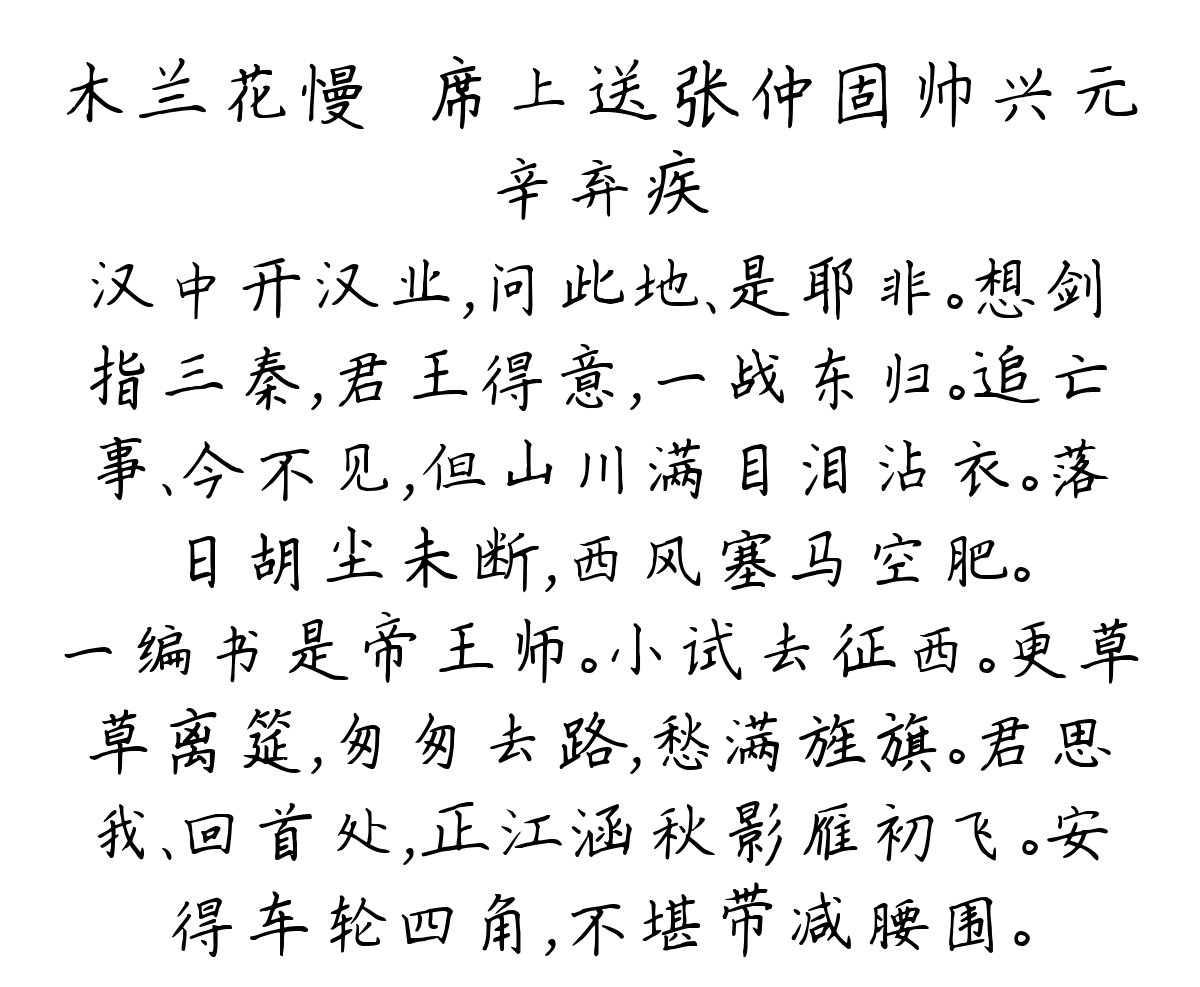 木兰花慢 席上送张仲固帅兴元
辛弃疾
汉中开汉业,问此地、是耶非。想剑
指三秦,君王得意,一战东归。追亡
事、今不见,但山川满目泪沾衣。落
日胡尘未断,西风塞马空肥。
一编书是帝王师。小试去征西。更草
草离筵,匆匆去路,愁满旌旗。君思
我、回首处,正江涵秋影雁初飞。安
得车轮四角,不堪带减腰围。